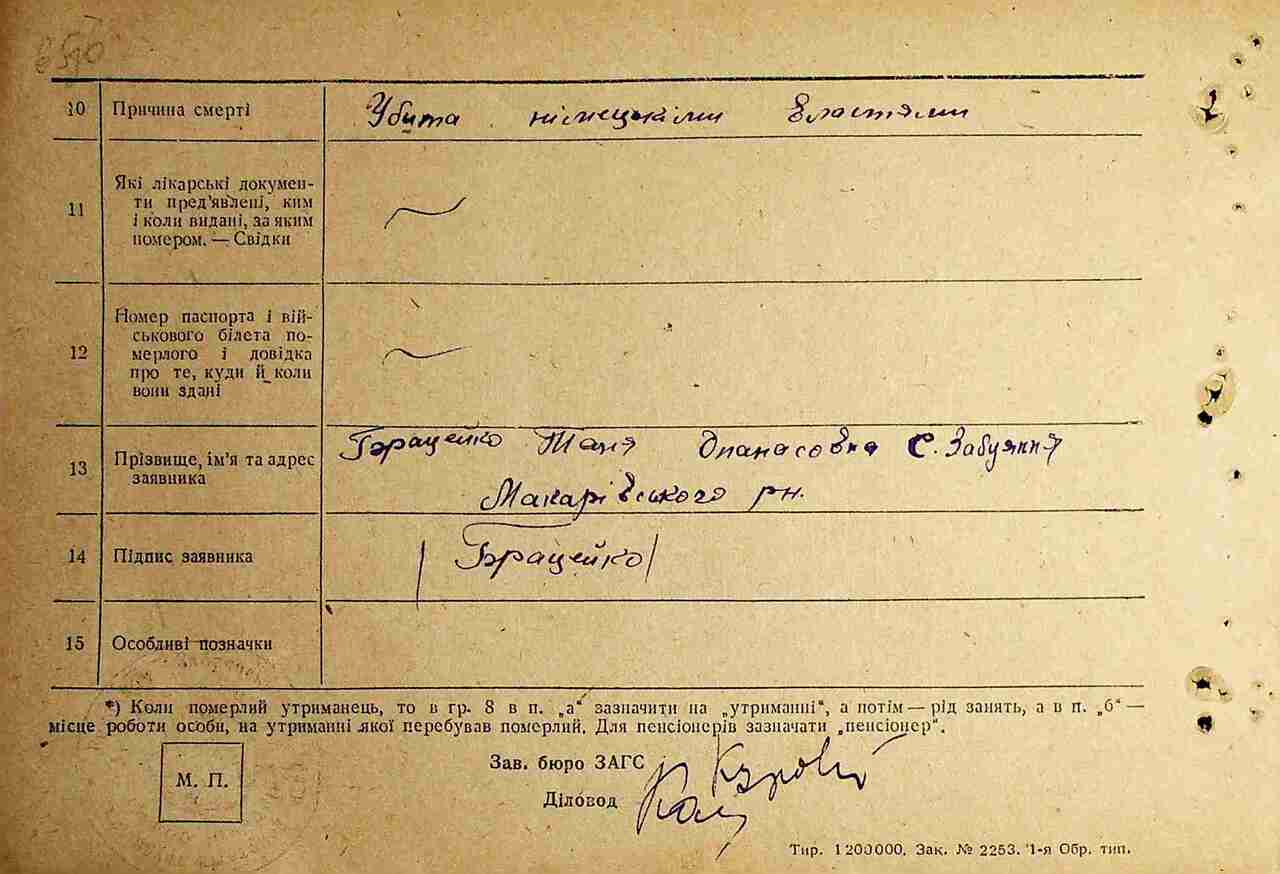 10 Причина смерті Убита німецькіми властями
11 Які лікарські докумен-
ти пред'явлені, ким
і коли видані, за яким
номером. — Свідки
12 Номер паспорта і вій-
ськового білета по-
мерлого і довідка
про те, куди й коли
вони здані
13 Прізвище, ім'я та адрес
заявника
Гераценко Таня Опанасовна с. Забуяння
Макарівського рн.
14 Підпис заявника
15 Особливі позначки
*) Коли померлий утриманець, то в гр. 8 в п. „а“ зазначити на „утриманні“, а потім — рід занять, а в п. „б“ —
місце роботи особи, на утриманні якої перебував померлий. Для пенсіонерів зазначати „пенсіонер“.
Зав. бюро ЗАГС
М. П.
Діловод
Тир. 1200000. Зак. № 2253. 1-я Обр. тип.